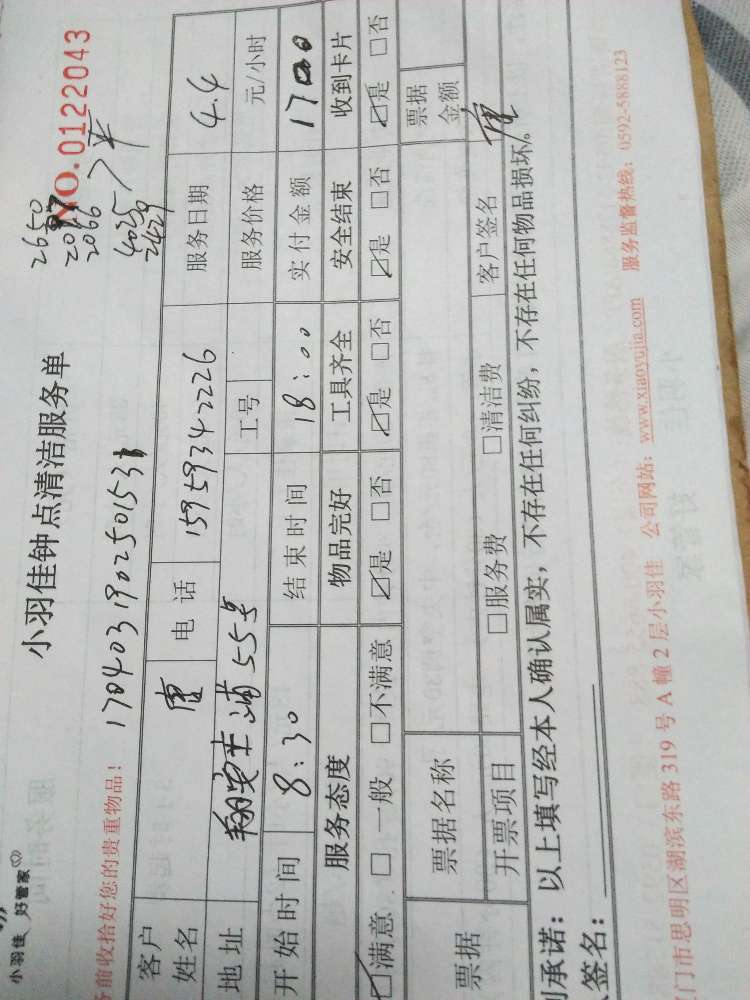 小羽佳 好管家
小羽佳钟点清洁服务单
NO.0122043
2650
2066
4025
2429
前收拾好您的贵重物品！
客户姓名 唐 电话 15959342226 服务日期 4.4
地址 55号 工号 服务价格 元/小时
开始时间 8:30 结束时间 18:00 实付金额 1700
服务态度 物品完好 工具齐全 安全结束 收到卡片
☑满意 □一般 □不满意 ☑是 □否 ☑是 □否 ☑是 □否 ☑是 □否
票据 票据名称 票据金额
开票项目 □服务费 □清洁费 客户签名 唐
承诺：以上填写经本人确认属实，不存在任何纠纷，不存在任何物品损坏。
签名：
门市思明区湖滨东路 319 号 A 幢 2 层小羽佳 公司网站：www.xiaoyujia.com 服务监督热线：0592-5888123